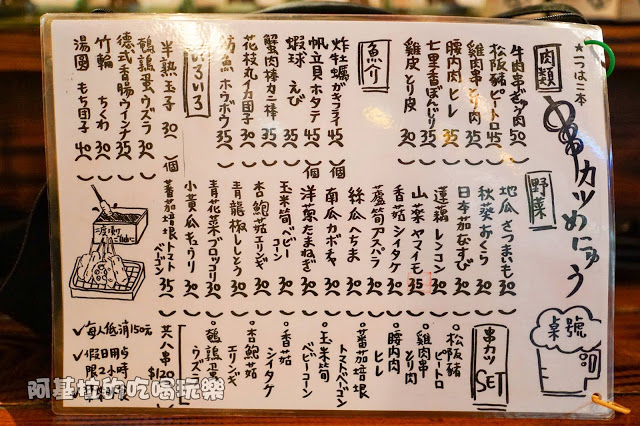 ★一つは二本
串カツめにゅう
桌號
肉類
牛肉串ぎゅう肉 50
松阪豬ピートロ 45
雞肉串とり肉 35
腰內肉ヒレ 35
七里香ぼんじり 35
雞皮とり皮 30
魚介
炸牡蠣がきフライ 45 (個)
帆立貝ホタテ 45 (個)
蝦球えび 35
花枝丸イカ団子 30
蟹肉棒カニ棒 30
魴魚ホウボウ 35
いろいろ
半熟玉子 30 (個)
鵪鶉蛋ウズラ 30
德式香腸ウインナ 35
竹輪ちくわ 30
湯圓もち団子 40
野菜
地瓜さつまいも 30
秋葵おくら 30
日本茄なすび 30
蓮藕レンコン 30
山藥ヤマイモ 35
香菇シイタケ 30
蘆筍アスパラ 30
絲瓜へちま 30
南瓜カボチャ 30
洋蔥たまねぎ 30
玉米筍ベビーコーン 30
杏鮑菇エリンギ 30
青龍椒ししとう 30
青花菜ブロッコリ 30
小黃瓜キュウリ 30
蕃茄培根トマトベーコン 35
串カツSET
•松阪豬ピートロ
•雞肉串とり肉
•腰內肉ヒレ
•蕃茄培根トマトベーコン
•玉米筍ベビーコーン
•香菇シイタケ
•杏鮑菇エリンギ
•鵪鶉蛋ウズラ
共八串$120
✓每人低消150元
✓假日用餐限2小時
阿基拉的吃喝玩樂